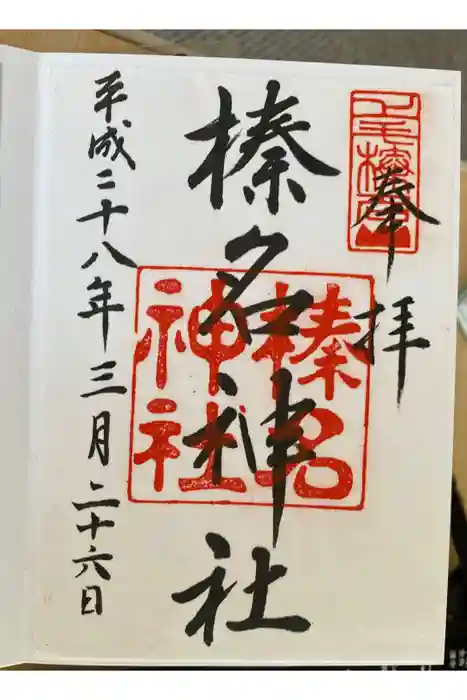 奉拝
榛名神社
榛名神社
平成二十八年三月二十六日